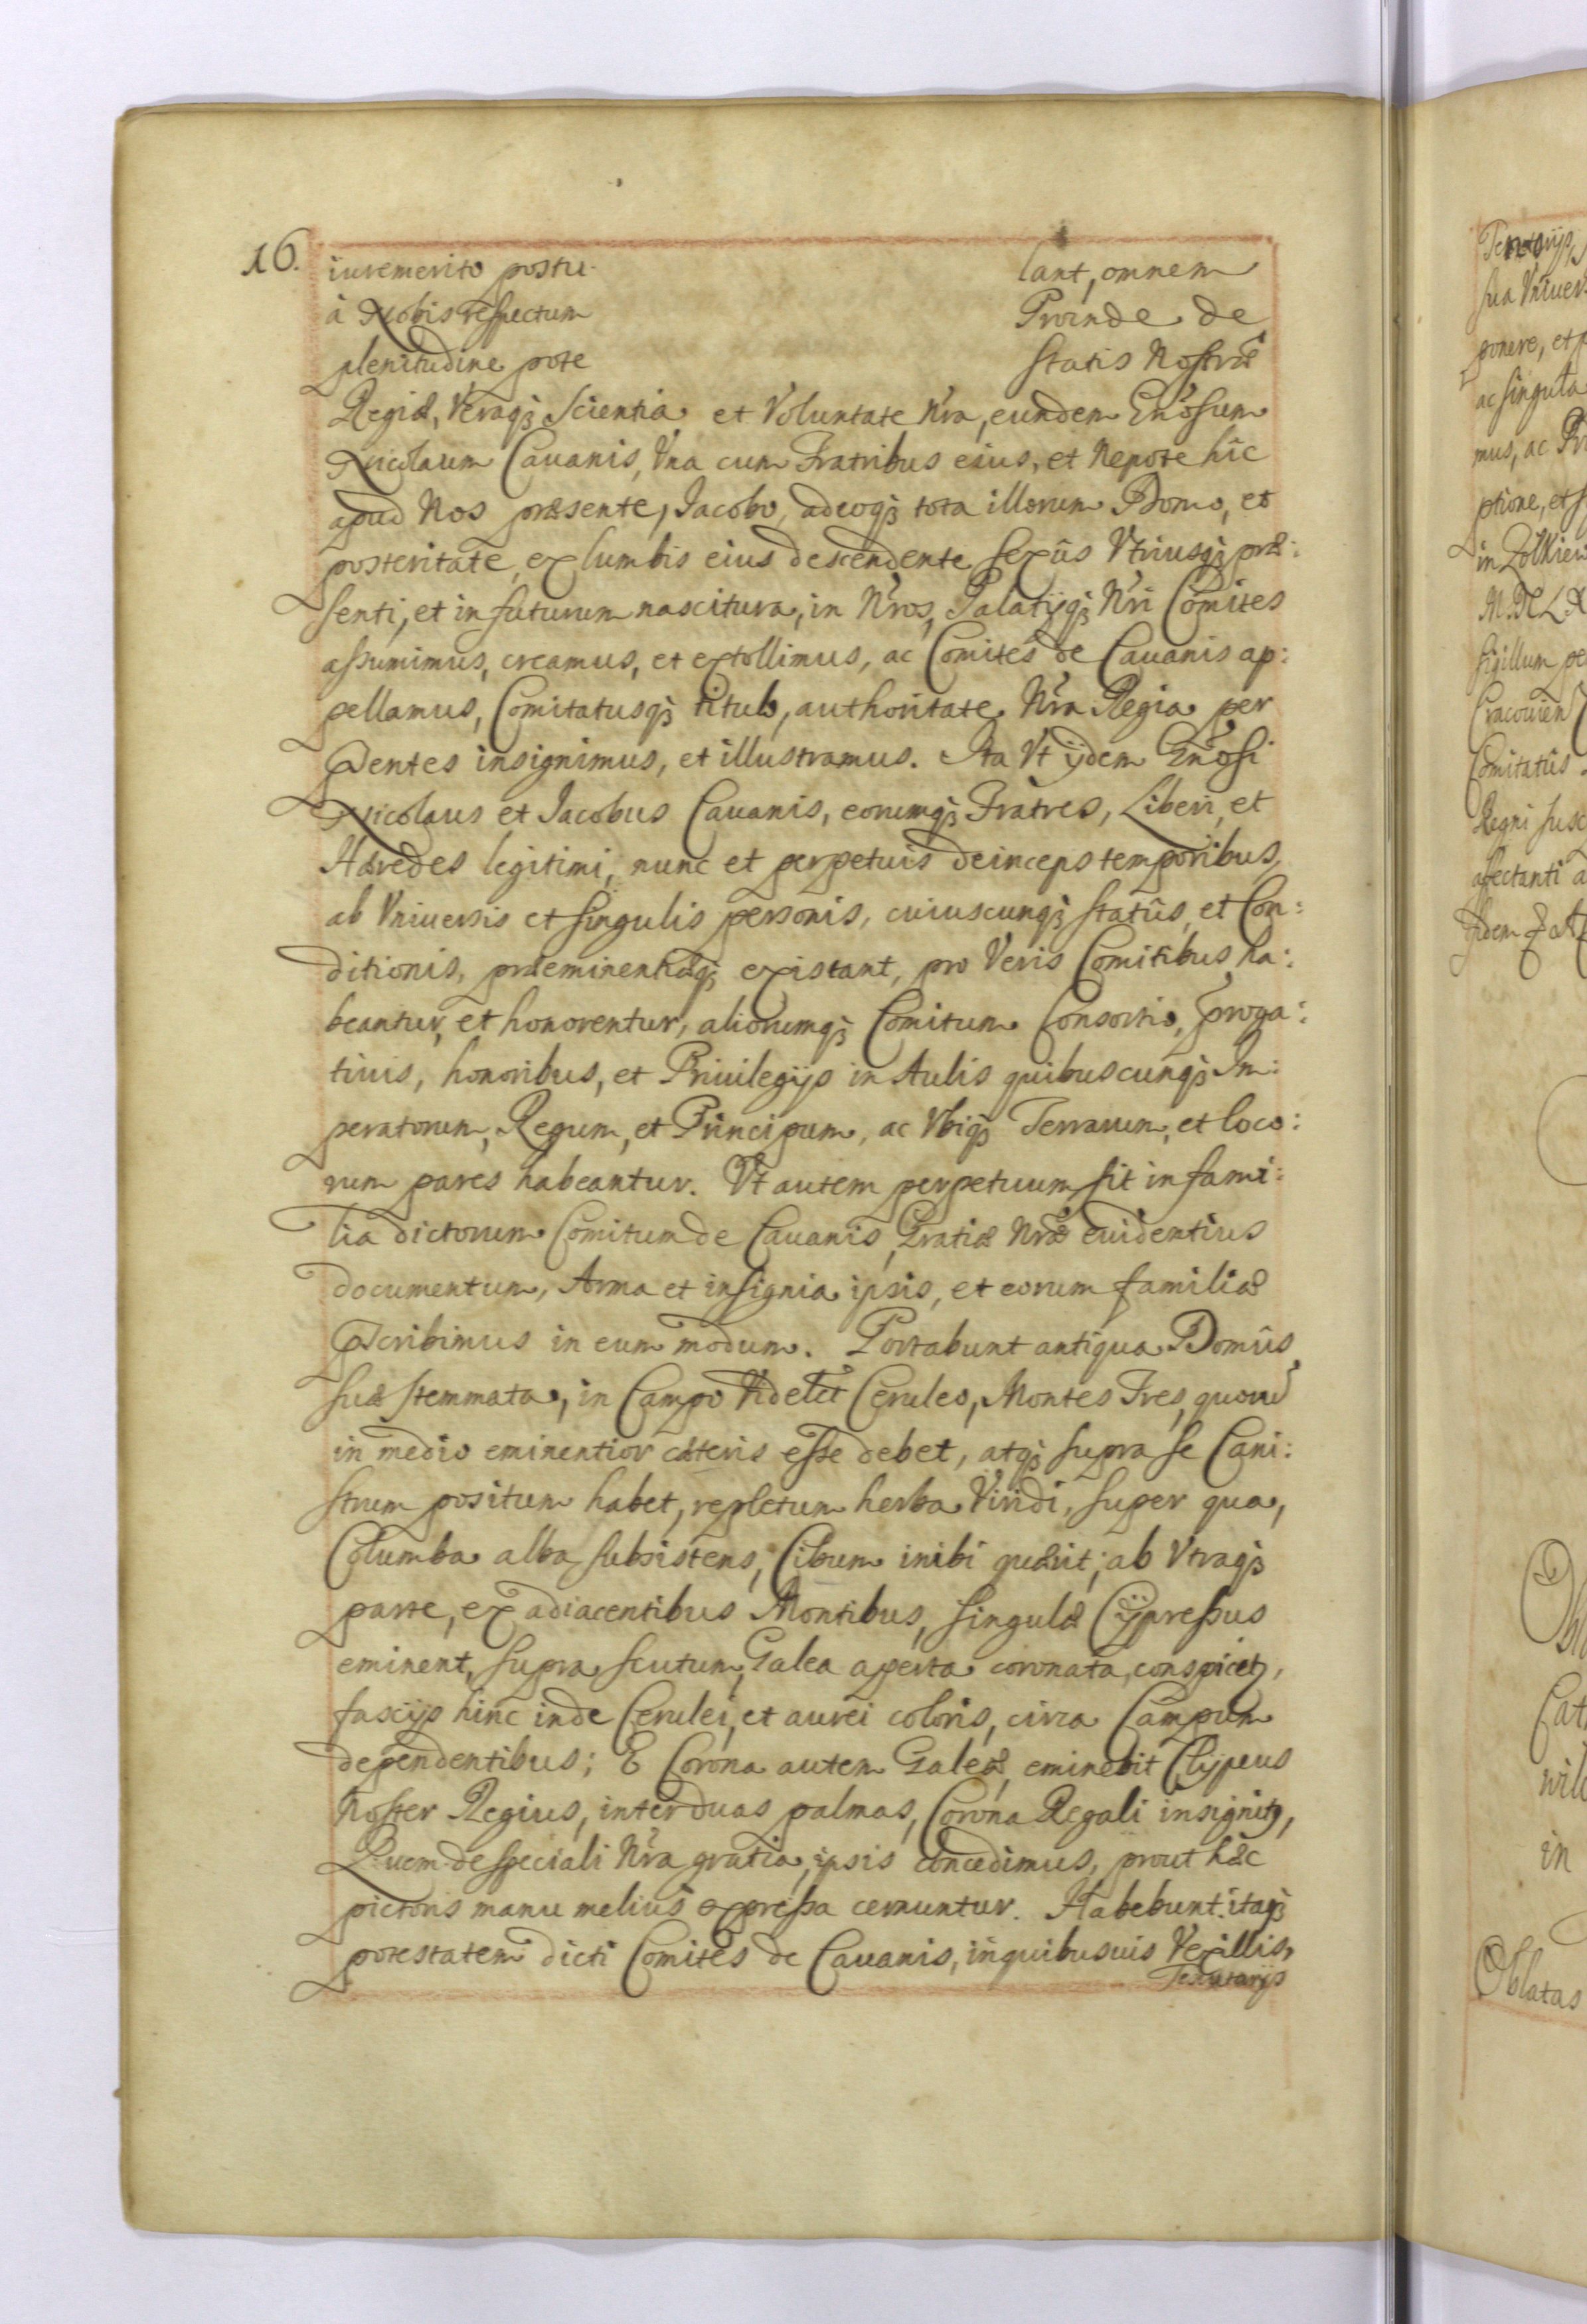 16.
iuremerito postu- lant, omnem
à Nobis respectum Proinde de
plenitudine pote statis Nostræ
Regiæ, Veraqꝫ Scientia et Voluntate Nra, eundem Gnosum
Nicolaum Cavanis, Vna cum Fratribus eius, et Nepote hic
apud Nos præsente, Iacobo, adeoqꝫ tota illorum Domo, et
posteritate, ex lumbis eius descendente sexûs Vtriusqꝫ præ:
senti, et in futurum nascitura, in Nros, Palatijqꝫ Nri Comites
assumimus, creamus, et extollimus, ac Comites de Cavanis ap:
pellamus, Comitatusqꝫ titulo, authoritate Nra Regia per
Pdentes insignimus, et illustramus. Ita Vt ijdem Gnosi
Nicolaus et Iacobus Cavanis, eorumqꝫ Fratres, Liberi, et
Hæredes legitimi, nunc et perpetuis deinceps temporibus,
ab Vniuersis et singulis personis, cuiuscunqꝫ statûs, et Con:
ditionis, præeminentiæqꝫ existant, pro Veris Comitibus ha:
beantur, et honorentur, aliorumqꝫ Comitum Consortio, Proga:
tiuis, honoribus, et Priuilegijs in Aulis quibuscunqꝫ Im:
peratorum, Regum, et Principum, ac Vbiqꝫ Terrarum, et loco:
rum pares habeantur. Vt autem perpetuum sit in fami:
lia dictorum Comitum de Cavanis, Gratiæ Nræ euidentius
documentum, Arma et insignia ipsis, et eorum familiæ
Pscribimus in eum modum. Portabunt antiqua Domûs
suæ stemmata, in Campo Videlet Ceruleo, Montes Tres, quoru
in medio eminentior cæteris esse debet, atqꝫ supra se Cani:
strum positum habet, repletum herba Viridi, super qua,
Columba alba subsistens, Cibum inibi quærit; ab Vtraqꝫ
parte, ex adiacentibus Montibus, singulæ Cÿpressus
eminent, supra scutum, Galea aperta coronata, conspicetꝫ,
fascijs hinc inde Cerulei, et aurei coloris, circa Campum
dependentibus; E Corona autem Galeæ, eminebit Clÿpeus
Noster Regius, inter duas palmas, Corona Regali insignitꝫ,
Quem de speciali Nra gratia, ipsis concedimus, prout hæc
pictoris manu melius expressa cernuntur. Habebunt itaqꝫ
potestatem dicti Comites de Cavanis, in quibusuis Vexillis,
Tentorijs
sua Vniuer
ponere, et p
ac singula
mus, ac Pri
ptione, et s
in Zolkieu
sigillum pe
Cracouien
Comitatûs
Regni susc
Cat
in
Oblatas